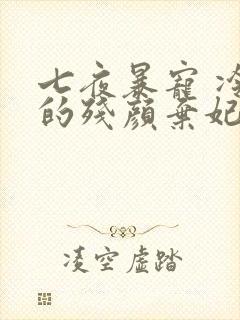 七夜暴寵 冷
的殘顏棄妃
凌空虛踏